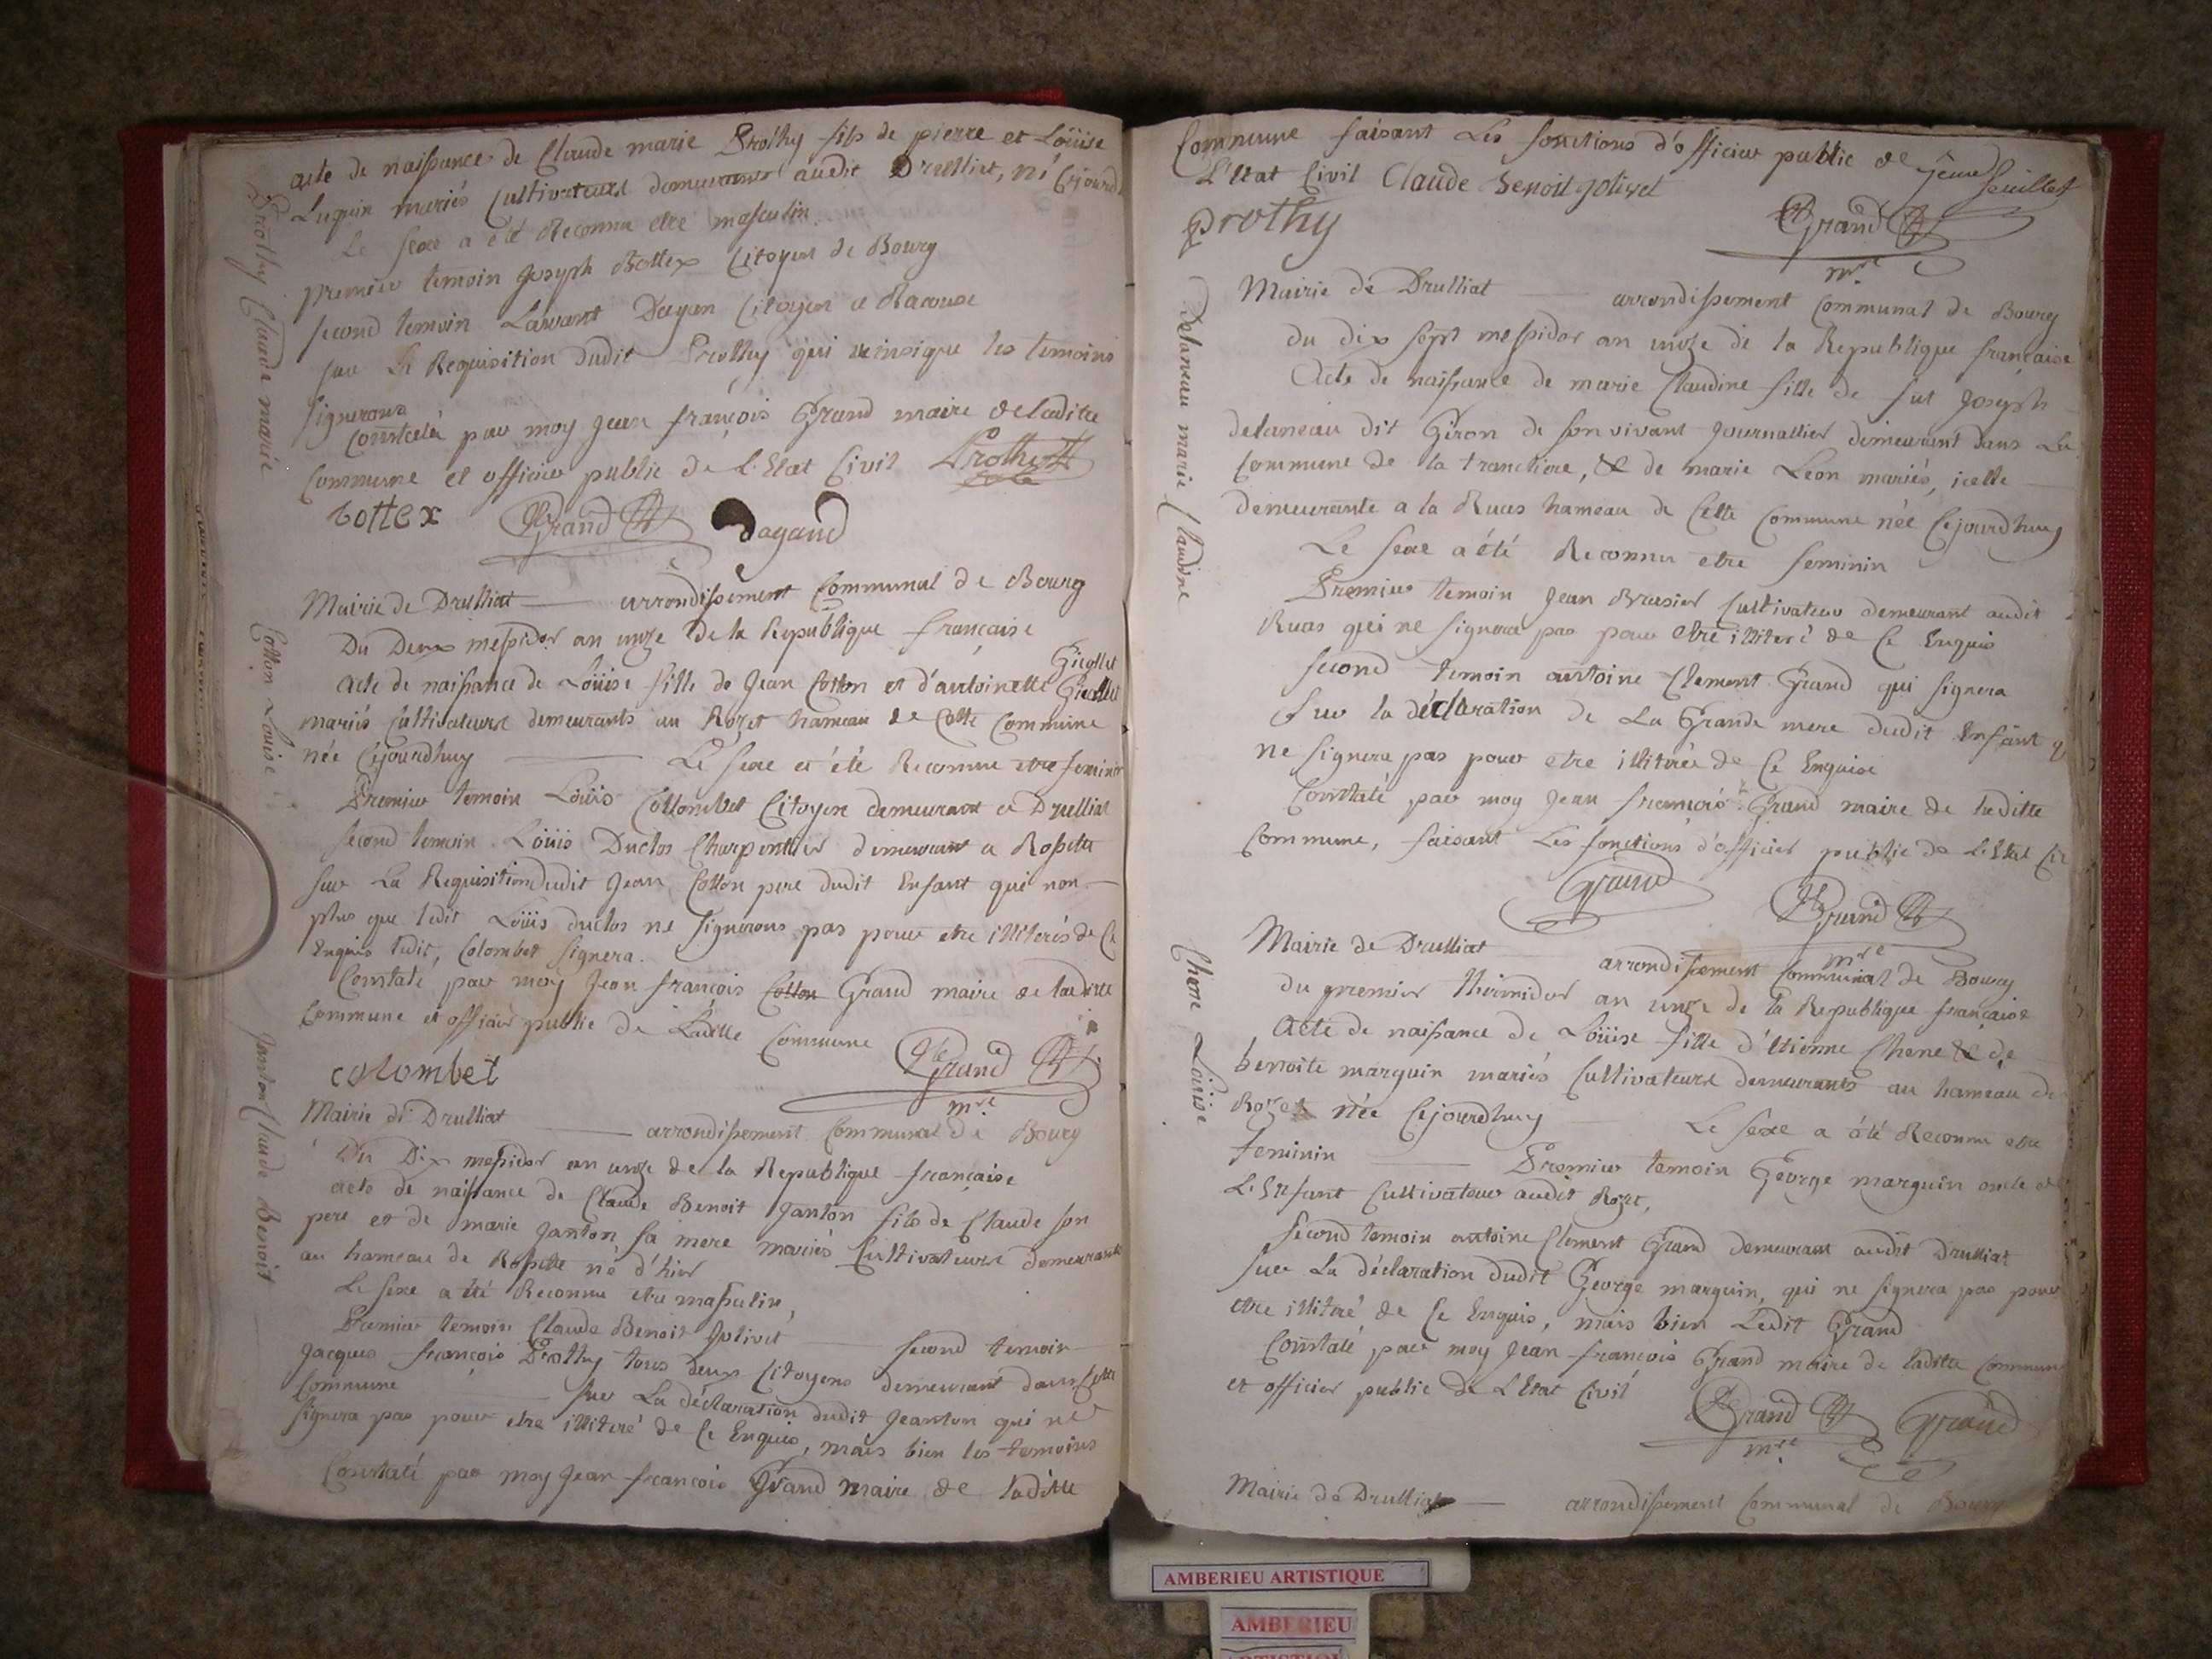 acte de naissance de Claude marie Prothy fils de pierre et Loüise
Luquin mariés Cultivateurs demeurants audit Drulliat, né Cejourd
Le sexe a été Reconnu etre masculin
premier temoin joseph Bottex Citoyen de Bourg
second temoin Laurant Dagan Citoyen a Racouse
sur La Requisition dudit Prothy qui insigne les temoins
signerons
Constaté par moy jean françois Grand maire de ladite
Commune et officier public de L'Etat Civil Prothy
bottex Grand dagand
Prothy Claude marie
Mairie de Drulliat arrondissement Communal de Bourg
Du Deux messidor an unze de la Republique française
Acte de naissance de Loüise fille de Jean Cotton et d'antoinette
mariés Cultivateurs demeurants au Rozet hameau de Cette Commune
née Cejourdhuy Le sexe a été Reconnu etre feminin
Premier temoin Loüis Collombet Citoyen demeurant a Drulliat
second temoin Loüis Duclos Charpentier demeurant a Rossette
sur La Requisition dudit Jean Cotton pere dudit Enfant qui non
plus que ledit Loüis duclos ne signerons pas pour etre illiterés de Ce
Enquis ledit, Colombet signera.
Constaté par moy Jean françois Cotton Grand maire de laditte
Commune et officier public de Laditte Commune
colombet Grand
mre
Cotton Loüise
Mairie de Drulliat arrondissement Communal de Bourg
Du Dix messidor an unze de la Republique française
acte de naissance de Claude Benoit Janton fils de Claude son
pere et de marie Janton sa mere mariés Cultivateurs demeurants
au hameau de Rossette né d'hier
Le sexe a été Reconnu etre masculin,
Premier temoin Claude Benoit Jolivet second temoin
Jacques françois Prothy tous deux Citoyens demeurant dans Cette
Commune sur La déclaration dudit Jeanton qui ne
signera pas pour etre illiteré de Ce Enquis, mais bien les temoins
Constaté par moy Jean françois Grand maire de laditte
Janton Claude Benoit
Commune faisant Les fonctions d'officier public de
L'Etat Civil Claude benoit jolivet
feuillet
prothy Grand
mre
Mairie de Drulliat arrondissement Communal de Bourg
du dix sept messidor an unze de la Republique française
Acte de naissance de marie Claudine fille de fut Joseph
delaneau dit Géron de son vivant Journallier demeurant dans La
Commune de la trancliere, & de marie Leon mariés, icelle
demeurante a la Ruas hameau de Cette Commune née Cejourdhuy
Le sexe a été Reconnu etre feminin
Premier temoin Jean Brasier Cultivateur demeurant audit
Ruas qui ne signera pas pour etre illiteré de Ce Enquis
second temoin antoine Clement Grand qui signera
sur la déclaration de La Grande mere dudit Enfant q
ne signera pas pour etre illiterée de Ce Enquise
Constaté par moy Jean françois Grand maire de laditte
Commune, faisant Les fonctions d'officier public de L'Etat Ci
Grand Grand
mre
Delaneau marie Claudine
Mairie de Drulliat arrondissement Communal de Bourg
du premier thermidor an unze de la Republique française
Acte de naissance de Loüise fille d'Etienne Chene & de
benoite marguin mariés Cultivateurs demeurants au hameau de
Rozet née Cejourdhuy Le sexe a été Reconnu etre
feminin Premier temoin George marguin oncle de
L'Enfant Cultivateur audit Rozet,
second temoin antoine Clement Grand demeurant audit Drulliat
sur La déclaration dudit George marguin, qui ne signera pas pour
etre illiteré de Ce Enquis, mais bien Ledit Grand
Constaté par moy Jean françois Grand maire de laditte Commune
et officier public de L'Etat Civil
Grand Grand
mre
Chene Loüise
Mairie de Drulliat arrondissement Communal de Bourg
AMBERIEU ARTISTIQUE
AMBERIEU